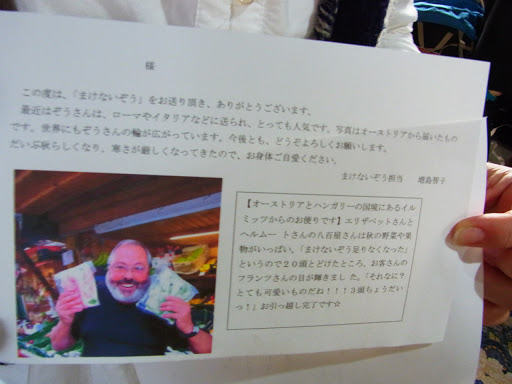 様
この度は、「まけないぞう」をお送り頂き、ありがとうございます。
最近はぞうさんは、ローマやイタリアなどに送られ、とっても人気です。写真はオーストリアから届いたもの
です。世界にもぞうさんの輪が広がっています。今後とも、どうぞよろしくお願いします。
だいぶ秋らしくなり、寒さが厳しくなってきたので、お身体ご自愛ください。
まけないぞう担当　増島智子
【オーストリアとハンガリーの国境にあるイル
ミッツからのお便りです】エリザベットさんと
ヘルムートさんの八百屋さんは秋の野菜や果
物がいっぱい、「まけないぞう足りなくなった」
というので２０頭とどけたところ、お客さんの
フランツさんの目が輝きました。「それなに？
とても可愛いものだね！！！３頭ちょうだい
っ！」お引っ越し完了です☆